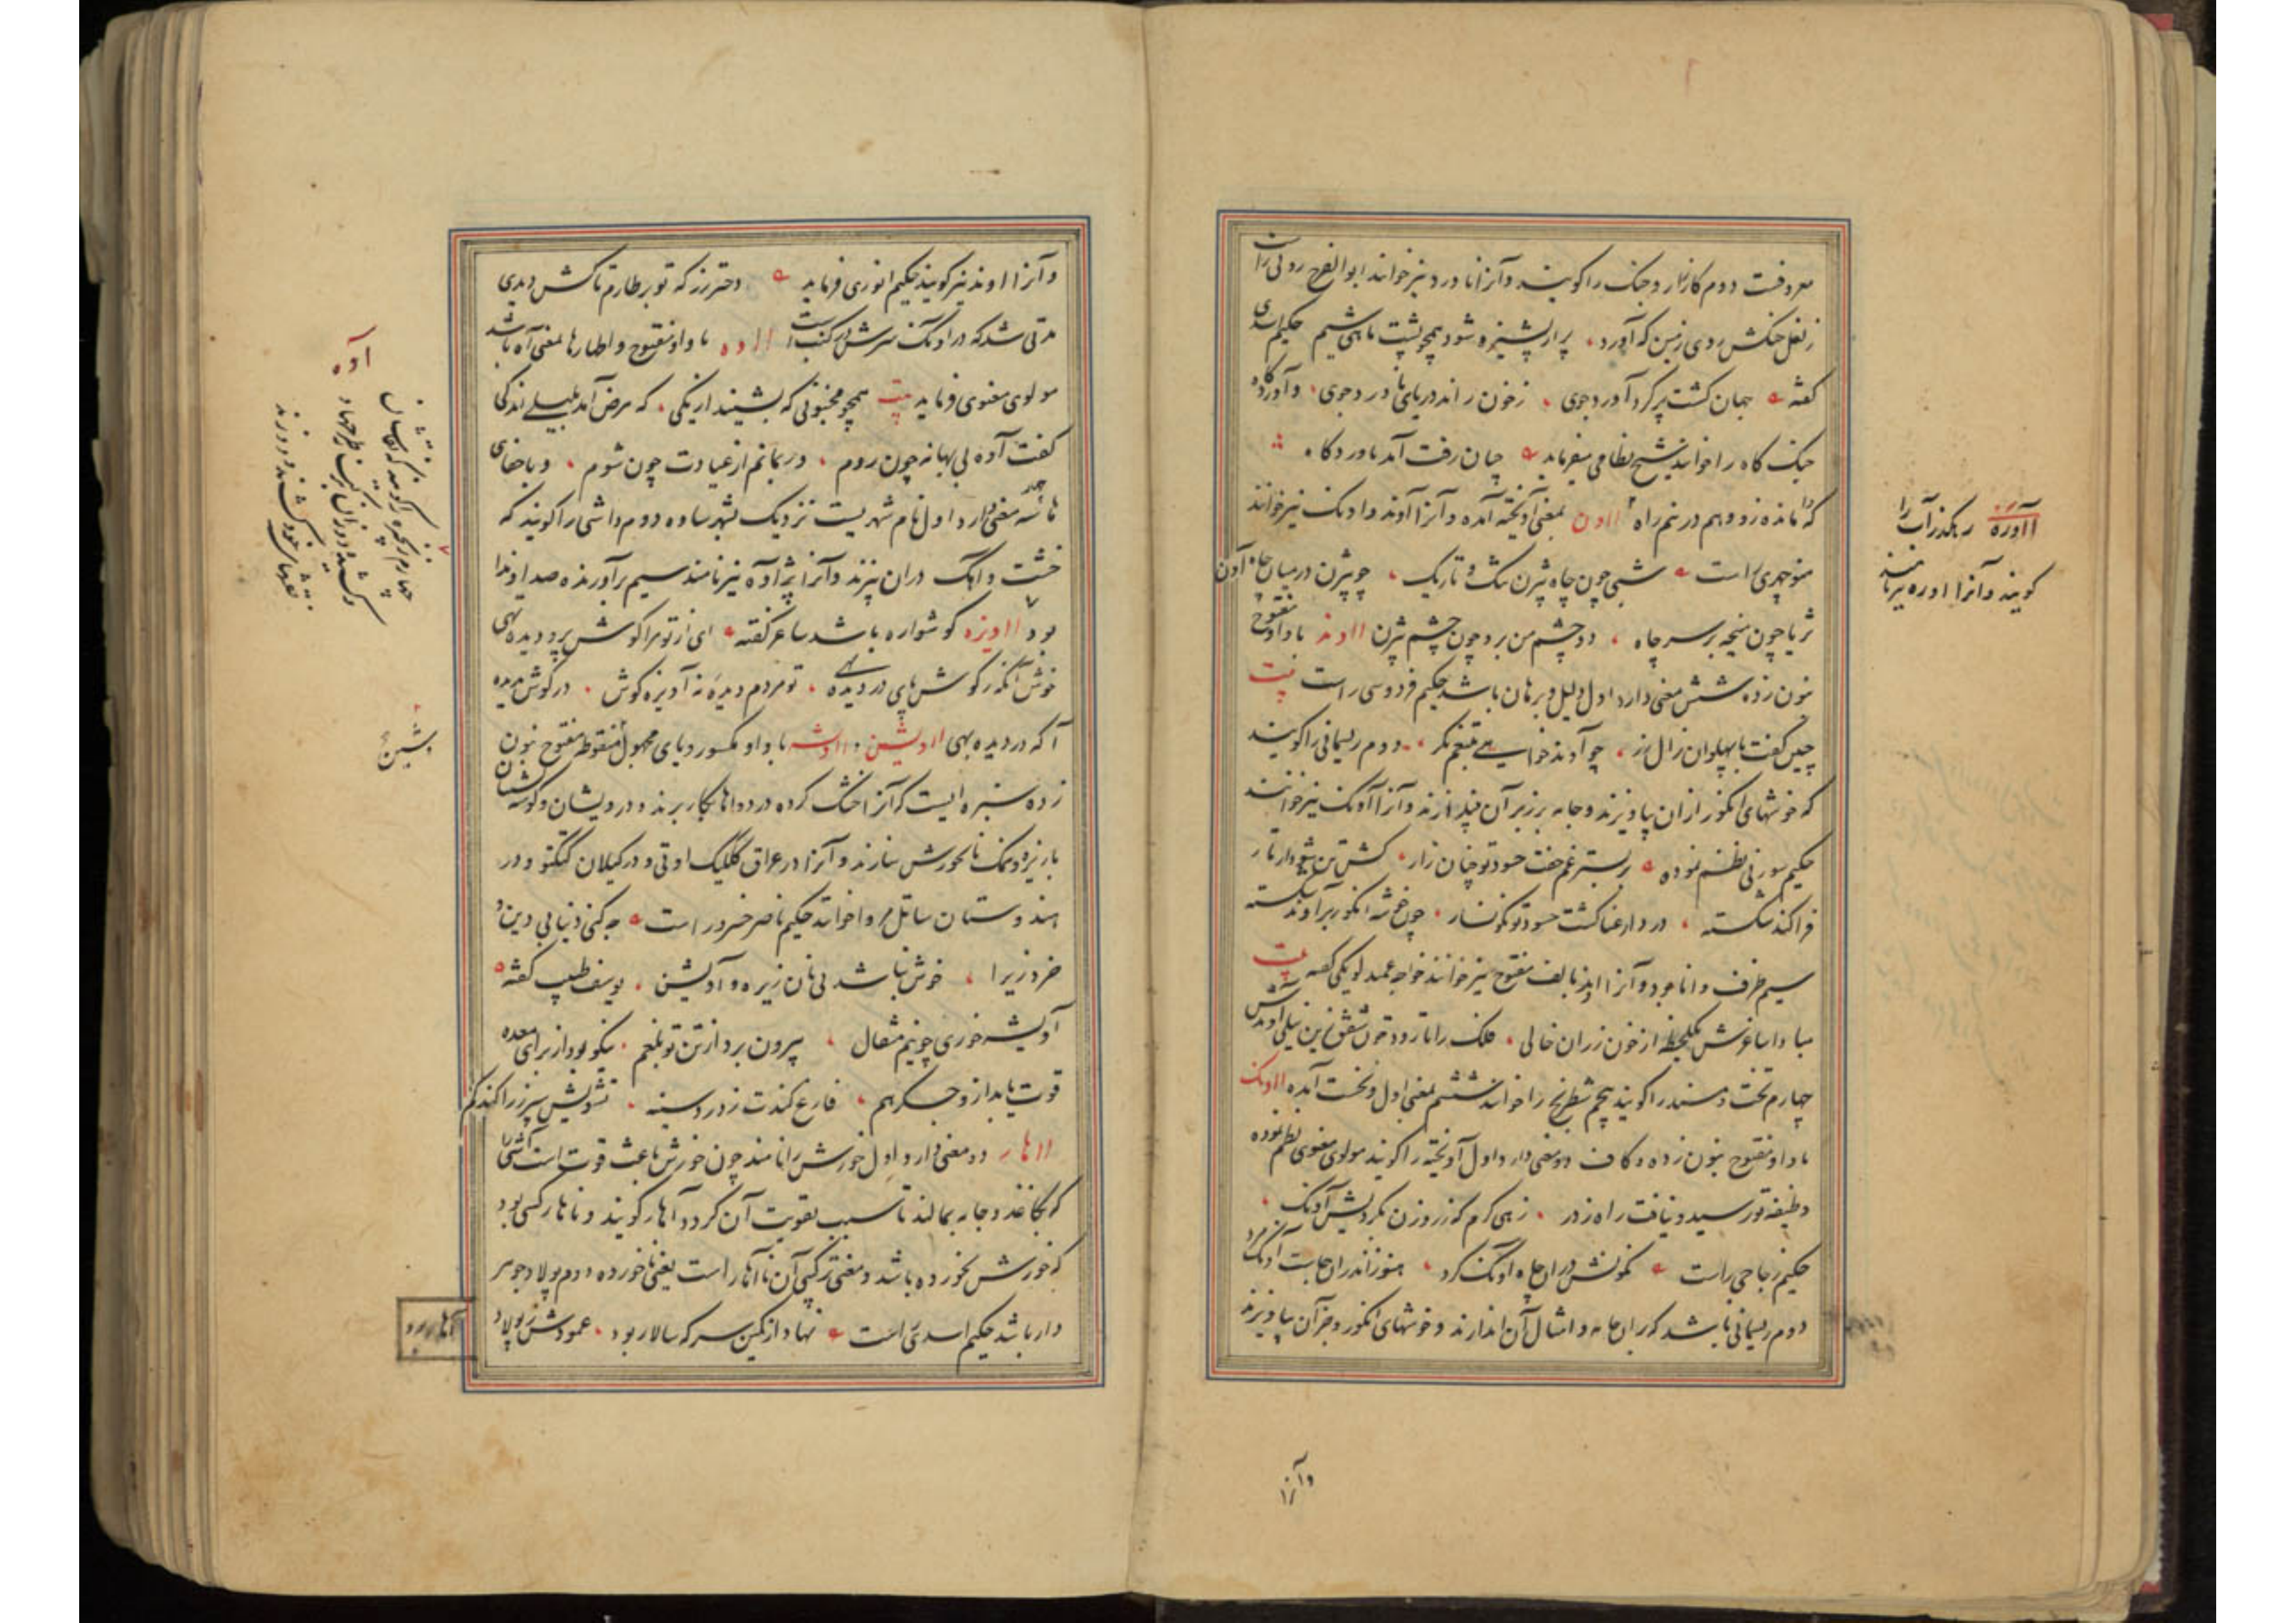 معروفست دوم کارزار و جنک را کویند و آنرا ناورد نیز خوانند ابوالفرج رونی راست
ز نعل خنکش روی زمین که آورد، پر از پشیزه شود همچو پشت ماهی شیم حکیم اسدی
کفته جهان کشت پر کرد آورد جوی، ز خون راند دریای ناورد جوی، و آوردگاه
جنک گاه را خوانند شیخ نظامی میفرماید چنان رفت آمد باوردکاه
که وا مانده زو وهم در نیم راه ااون بمعنی آویخته آمده و آنرا آوند و اونک نیز خوانند
منوچهری راست شبی چون چاه بیژن تنک و تاریک، چو بیژن در میان چاه آون
ثریا چون منیجه بر سر چاه، دو چشم من برو چون چشم بیژن ااوند با واو مفتوح
بنون زده شش معنی دارد اول دلیل و برهان باشد حکیم فردوسی راست بیت
چنین کفت با پهلوان زال زر، چو آوند خواهی به تیغم نکر، دوم ریسمانی را کویند
که خوشهای انکور ازان بیاویزند و جامه بر زبر آن نیز اندازند و آنرا آونک نیز خوانند
حکیم سوزنی نظم نموده بر بستر غم خفت حسود تو چنان زار،
فراکند شکسته، در دار عنا کشت حسود تو نکونسار، چون خوشه انکور بر آوند شکسته
سیم ظرف و انا بود و آنرا اوند بالف مفتوح نیز خوانند خواجه عمید لویکی کفته بیت
مبادا ساغرش یکلحظه از خون رزان خالی، فلک را تا رود خون شفق زین نیلی آوندش
چهارم تخت و مسند را کویند پنجم شطرنج را خوانند ششم بمعنی اول و نخست آمده ااونک
با واو مفتوح بنون زده و کاف دو معنی دارد اول آویخته را کویند مولوی معنوی نظم نموده
وظیفه تو رسید و نیافت راه ز در، زهی کرم که ز روزن بکردیش آونک،
حکیم زجاجی راست نکونش دران چاه اونک کرد، هنوز اندران جاست آونک مرد
دوم ریسمانی باشد که بران جامه و امثال آن اندازند و خوشهای انکور و جز آن بیاویزند
و آنرا
ااوره رهکذر آب را
کویند و آنرا اوره نیز نامند
و آنرا اوند نیز کویند حکیم انوری فرماید دختر رز که تو بر طارم تاکش دیدی
مدتی شد که در آونک سرش در کنب است ااوه با واو مفتوح و اظهار ها بمعنی آه باشد
مولوی معنوی فرماید بیت همچو مجنونی که بشنید از یکی، که مرض آمد بلیلی اندکی
کفت آوه بی بهانه چون روم، ور بمانم از عیادت چون شوم، و با خفای
ها سه معنی دارد اول نام شهریست نزدیک بشهر ساوه دوم داشی را کویند که
خشت و آهک دران پزند و آنرا پژاوه نیز نامند سیم برآورنده صدا و ندا
بود ااویزه کوشواره باشد شاعر کفته ای از تو مرا کوش پر و دیده تهی
خوش آنکه ز کوش پای در دیده نهی، تو مردم دیده نه آویزه کوش، در کوش مدیده
آ که در دیده بهی ااویشن و ااویشنه با واو مکسور و یای مجهول و شین منقوطه مفتوح بنون
زده سبزه ایست که آنرا خشک کرده در دواها بکار برند و درویشان و کوشه نشینان
با زیره و نمک نانخورش سازند و آنرا در عراق کللیک اوتی و در کیلان ککتو و در
هندوستان ساتل مروا خوانند حکیم ناصر خسرو راست چه کنی دنیا بی دین و
خرد زیرا، خوش نباشد بی نان زیره و آویشن، یوسفی طبیب کفته
آویشه خوری چو نیم مثقال، بیرون برد از تن تو بلغم، نیکو بود از برای معده
قوت یابد ازو جکر هم، فارغ کندت ز درد سینه، تشویش سپرز را کند کم
ااهار دو معنی دارد اول خورش را نامند چون خورش باعث قوت است آشی را
که بکاغذ و جامه بمالند تا سبب تقویت آن کردد آهار کویند و ناهار کسی بود
که خورش نخورده باشد و معنی ترکیبی آن ناآهار است یعنی ناخورده دوم پولاد جوهر
دار باشد حکیم اسدی راست نهاد از کمین سر که سالار بود، عمودش ز پولاد
آهار بود
آوه
شین